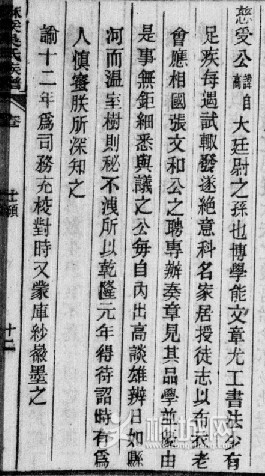 慈受公諱自高大廷尉之孫也博學能文章尤工書法少有
足疾每遇試輙發遂絶意科名家居授徒志以布衣老
會應相國張文和公之聘專辦奏章見其品學並優由
是事無鉅細悉與議之公每自内出高談雄辨日如縣
河而温室樹則秘不洩所以乾隆元年得待詔時有為
人慎蜜朕所深知之
諭十二年為司務充校對時又蒙庫紗徽墨之
十二